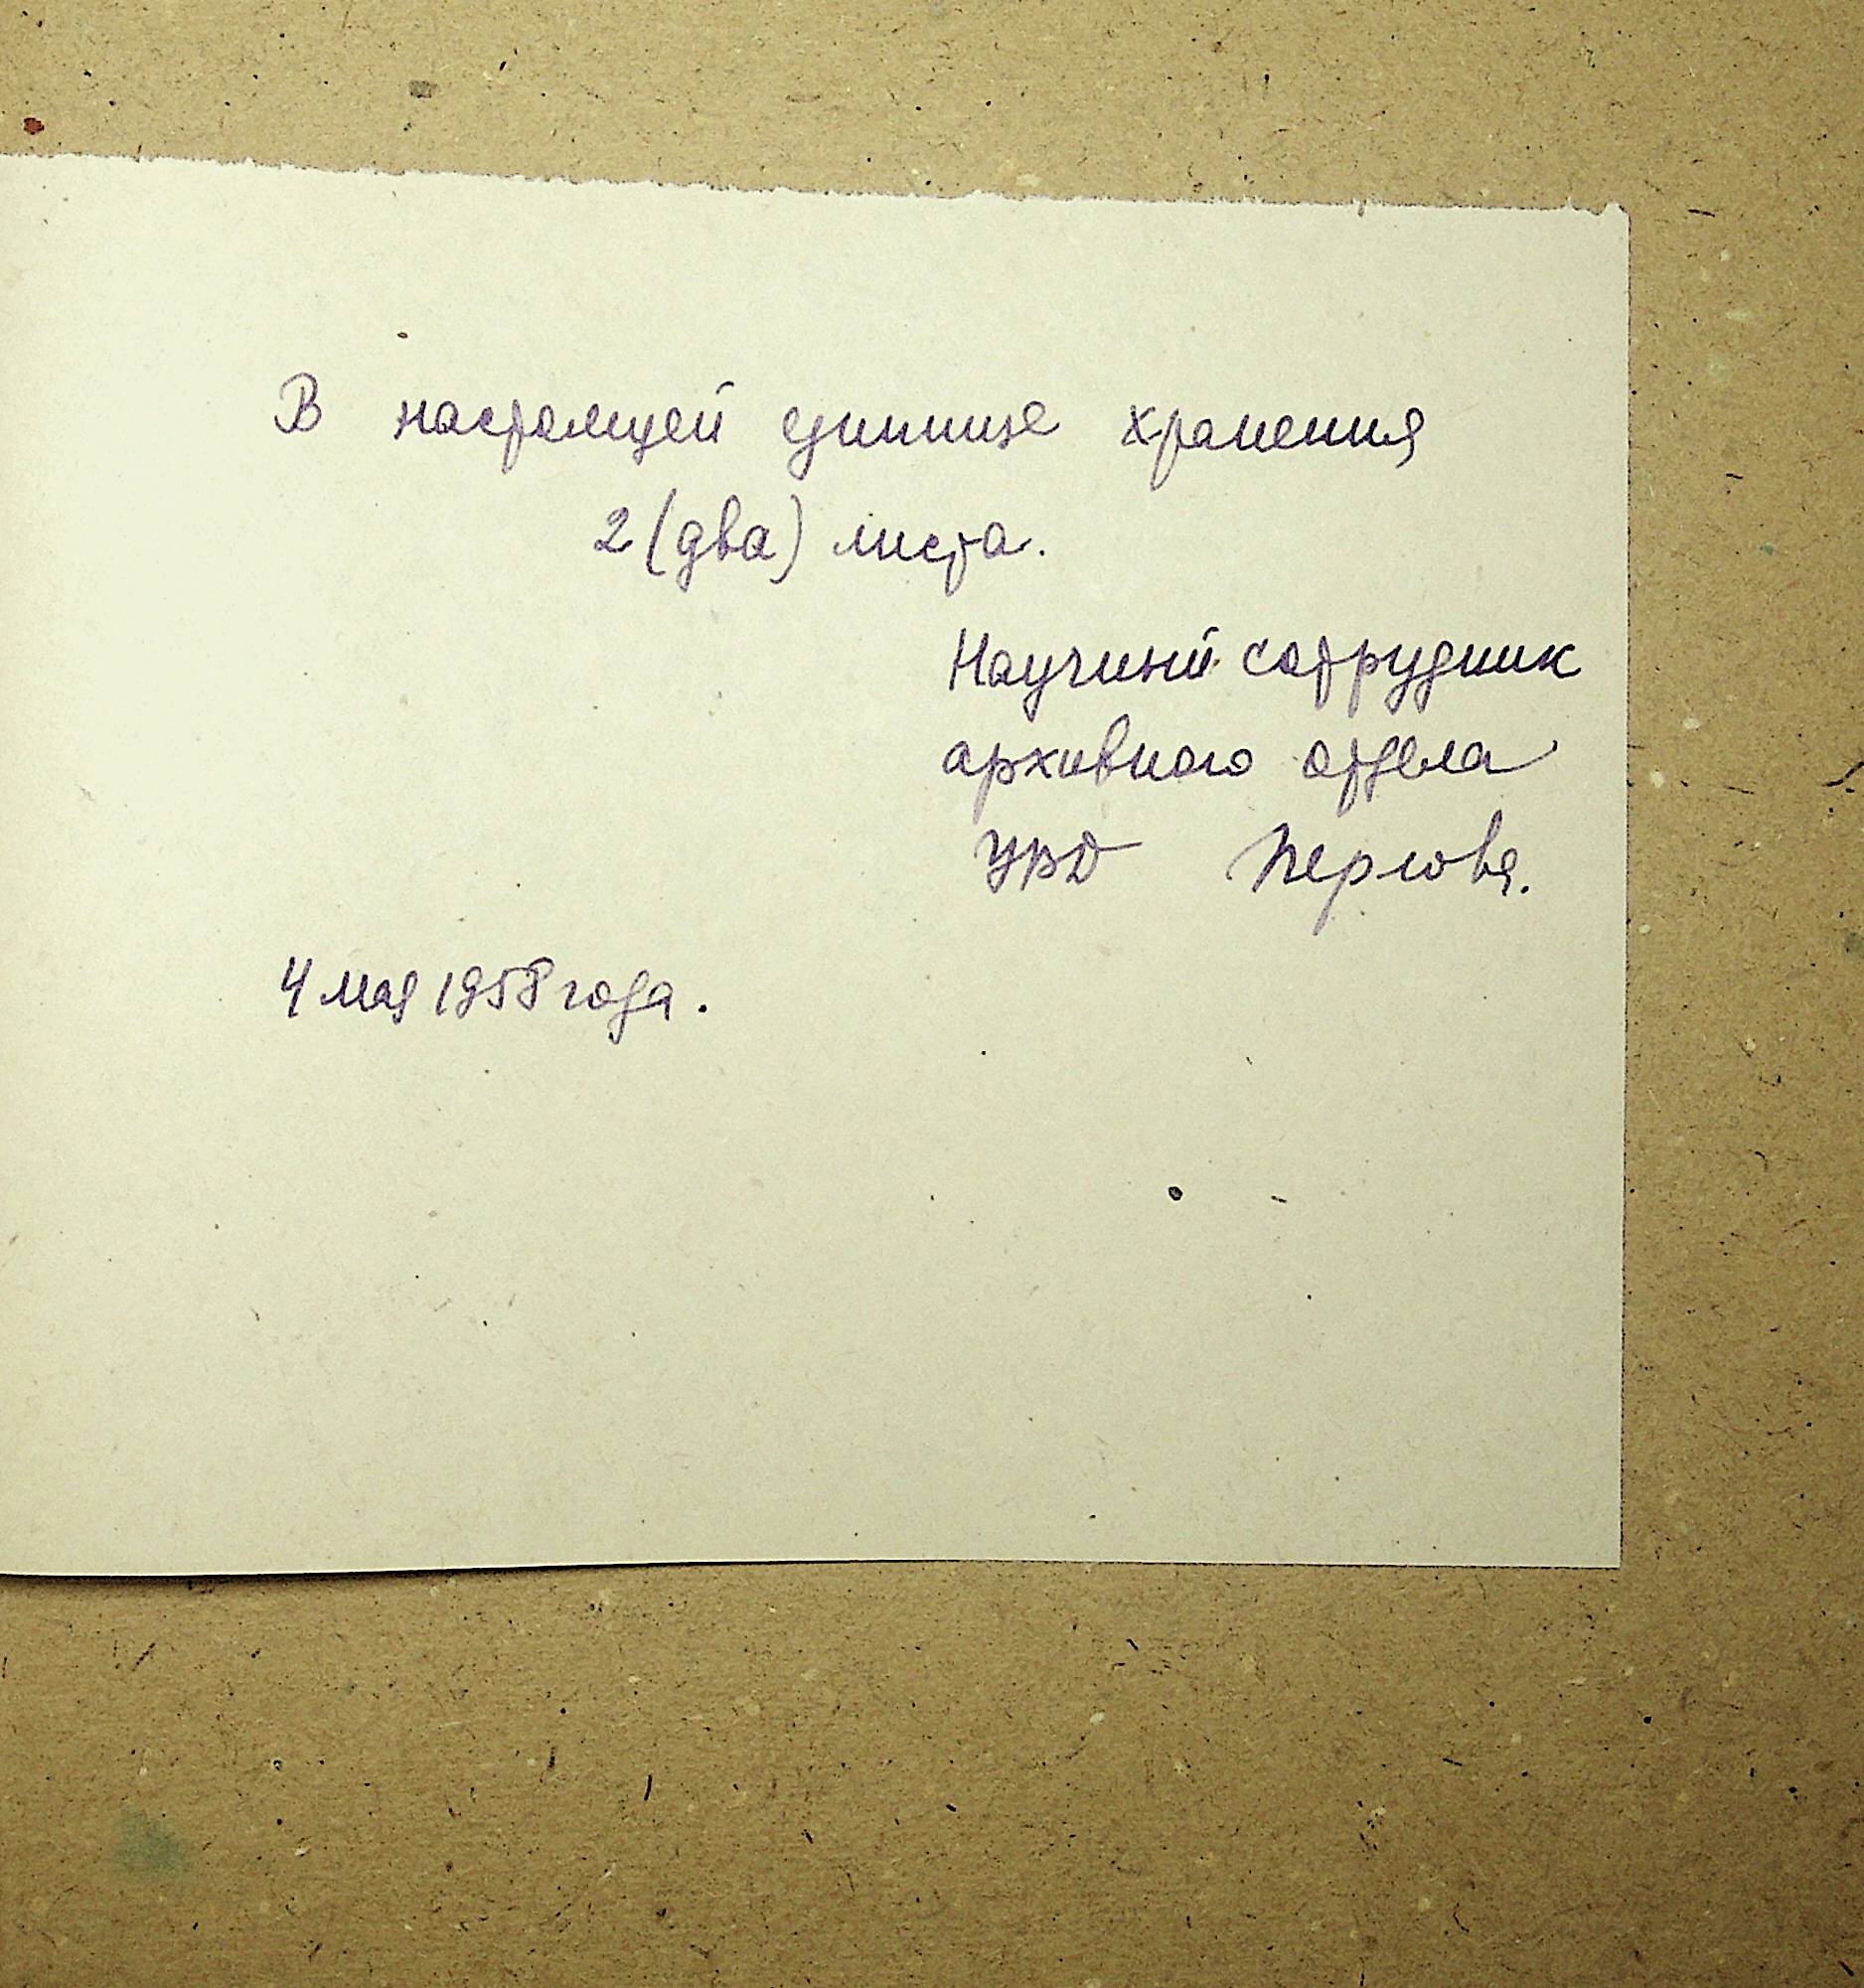 В настоящей единице хранения
2 (два) листа.
Научный сотрудник
архивного отдела
УРД Перлова.
4 мая 1958 года.